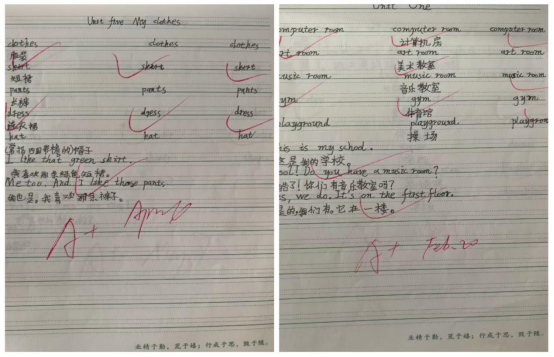 Unit five My clothes
clothes clothes clothes
服装
skirt skirt skirt
短裙
pants pants pants
长裤
dress dress dress
连衣裙
hat hat hat
I like that green skirt.
我喜欢那条绿色的短裙。
Me too. And I like those pants.
我也是。我喜欢那条裤子。
A+
业精于勤，荒于嬉；行成于思，毁于随。
Unit One
computer room computer room computer room
计算机房
art room art room art room
美术教室
music room music room music room
音乐教室
gym gym gym
体育馆
playground playground playgroun
操场
is is my school.
是我的学校。
ool! Do you have a music room?
了！你们有音乐教室吗？
s, we do. It's on the first floor.
是的，我们有。它在一楼。
A+ Feb. 20
业精于勤，荒于嬉；行成于思，毁于随。